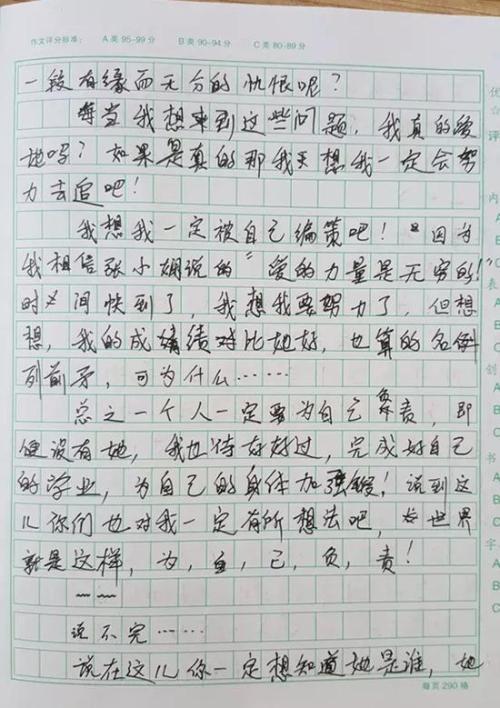 作文评分标准： A类 95-99分 B类 90-94分 C类 80-89分
一段有缘而无分的仇恨呢？
每当我想来到这些问题，我真的爱
她吗？如果是真的那我天想我一定会努
力去追吧！
我想我一定被自己编策吧！“因为
我相信张小娴说的“爱的力量是无穷的！”
时间快到了，我想我要努力了，但想
想，我的成绩对比她好，也算的名例
列前矛，可为什么……
总之一个人一定要为自己负责，即
便没有她，我也待好好过，完成好自己
的学业，为自己的身体加强锻！说到这
儿你们也对我一定有所想法吧，世界
就是这样，为，自，己，负，责！
~~
说不完……
说在这儿你一定想知道她是谁，她
每页290格
优
评
内
A
B
C
表
A
B
C
创
A
书
B
C
字
A
B
C